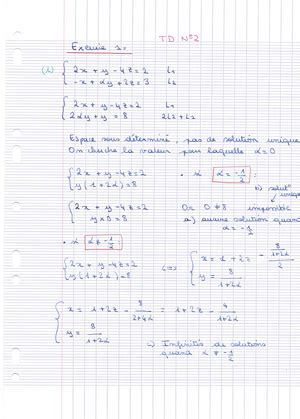 TD N°2
Exercice 1:
(1) { 2x + y - 4z = 2 L1
-x + αy + 2z = 3 L2
{ 2x + y - 4z = 2 L1
2αy + y = 8 2L2 + L1
Espace sous déterminé, pas de solution unique
On cherche la valeur pour laquelle α = 0
{ 2x + y - 4z = 2
y (1 + 2α) = 8
• si α = -1/2 :
b) solut° unique
{ 2x + y - 4z = 2
y x 0 = 8
0 = 0 ≠ 8 impossible
a) aucune solution quand
α = -1/2
• si α ≠ -1/2 :
{ 2x + y - 4z = 2
y (1 + 2α) = 8
<=> { x = 1 + 2z - 8/(1+2α)/2
y = 8/(1+2α)
{ x = 1 + 2z - 8/(2+4α) = 1 + 2z - 4/(1+2α)
y = 8/(1+2α)
c) Infinités de solutions
quand α ≠ -1/2